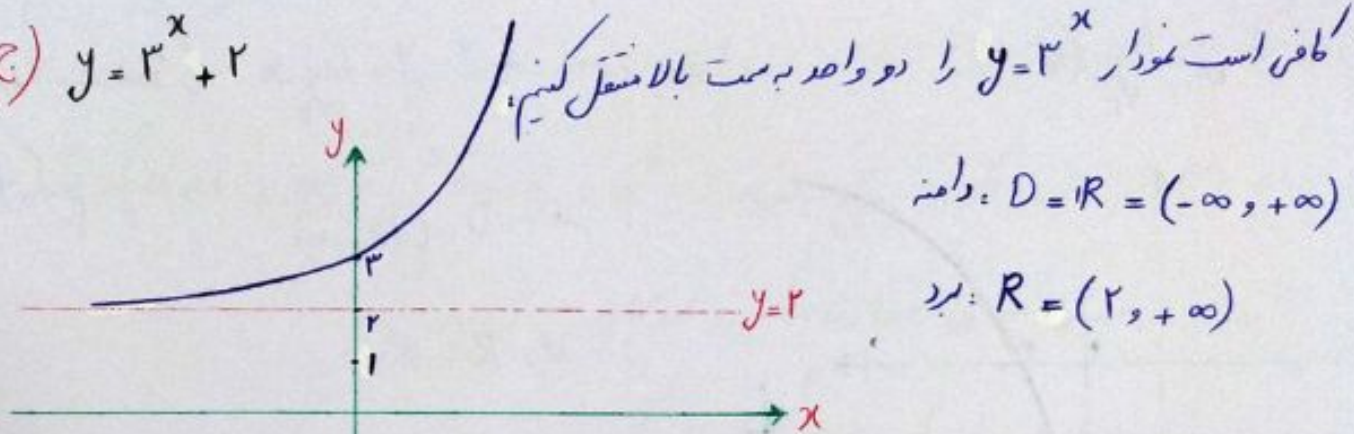 ج) y = ۳^x + ۲
کافی است نمودار y=۳^x را دو واحد به سمت بالا منتقل کنیم:
دامنه: D = ℝ = (-∞, +∞)
برد: R = (۲, +∞)
y
۳
y=۲
۲
۱
x